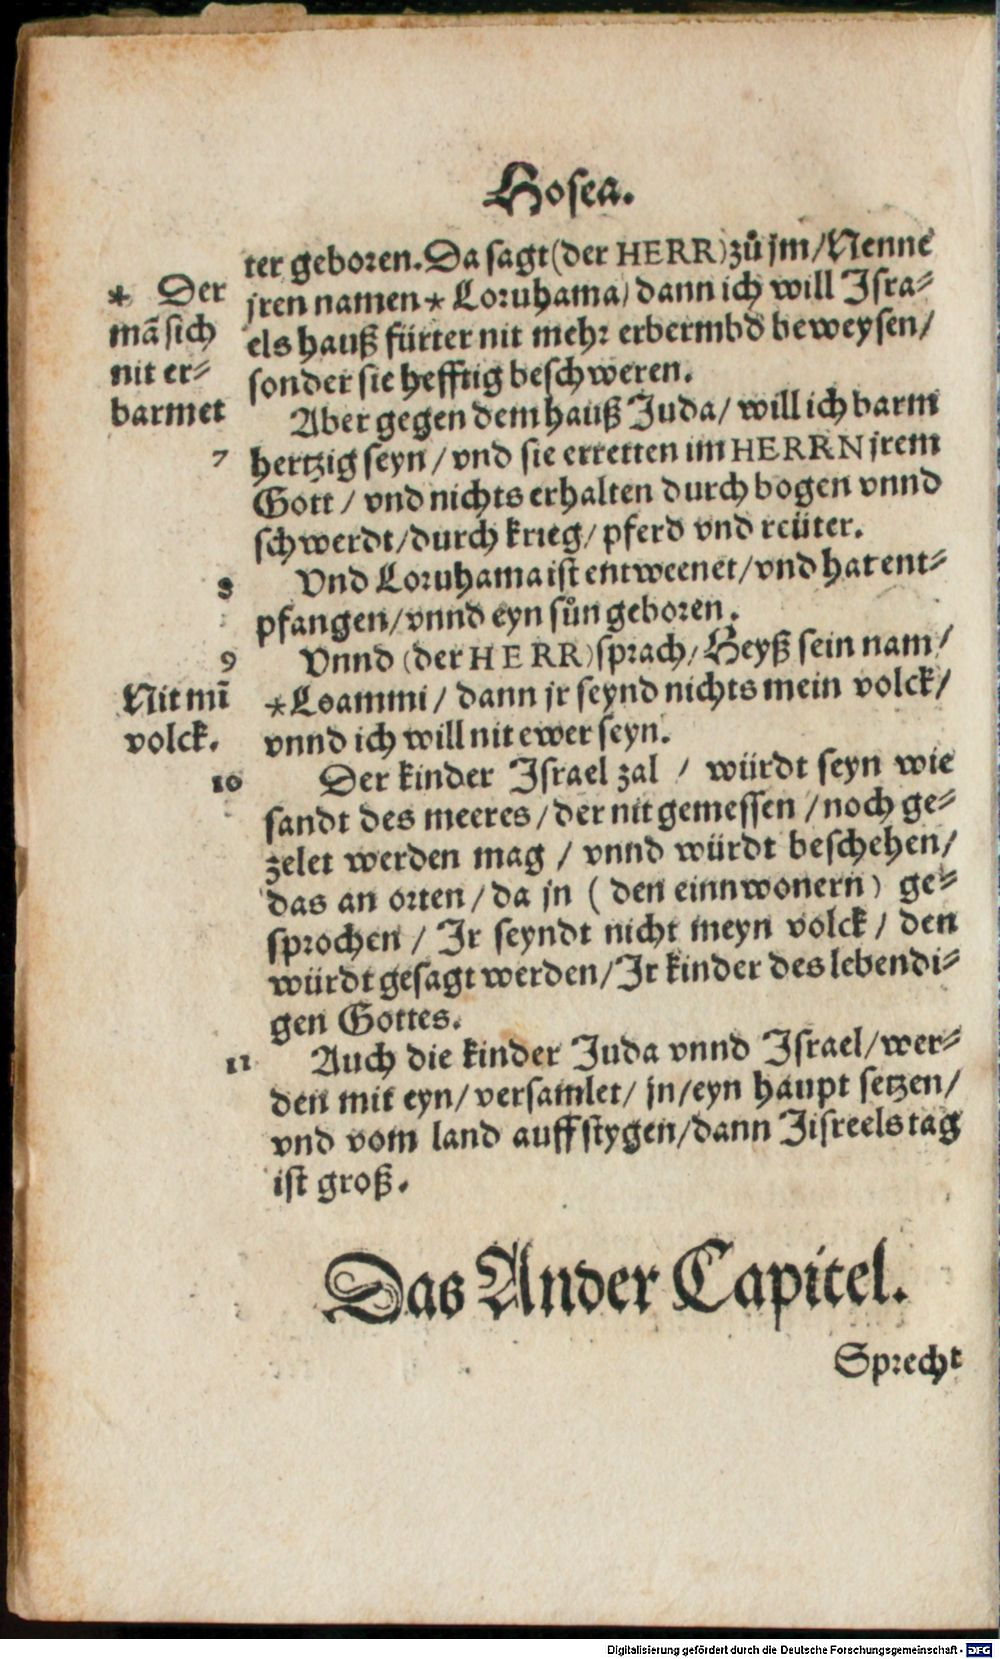 Hosea.
ter geboren. Da sagt (der HERR) zů jm / Nenne
* Der
jren namen * Loruhama / dann ich will Isra-
mā sich
els hauß fürter nit mehr erbermbd beweysen /
nit er-
sonder sie hefftig beschweren.
barmet
Aber gegen dem hauß Juda / will ich barm
7
hertzig seyn / vnd sie erretten im HERRN jrem
Gott / vnd nichts erhalten durch bogen vnnd
schwerdt / durch krieg / pferd vnd reüter.
8
Vnd Loruhama ist entweenet / vnd hat ent-
pfangen / vnnd eyn sůn geboren.
9
Vnnd (der HERR) sprach / Heyß sein nam /
Nit mī
* Loammi / dann jr seynd nichts mein volck /
volck.
vnnd ich will nit ewer seyn.
10
Der kinder Israel zal / würdt seyn wie
sandt des meeres / der nit gemessen / noch ge-
zelet werden mag / vnnd würdt beschehen /
das an orten / da jn ( den einnwonern ) ge-
sprochen / Ir seyndt nicht meyn volck / den
würdt gesagt werden / Ir kinder des lebendi-
gen Gottes.
11
Auch die kinder Juda vnnd Israel / wer-
den mit eyn / versamlet / jn / eyn haupt setzen /
vnd vom land auffstygen / dann Jisreels tag
ist groß.
Das Ander Capitel.
Sprecht
Digitalisierung gefördert durch die Deutsche Forschungsgemeinschaft - DFG